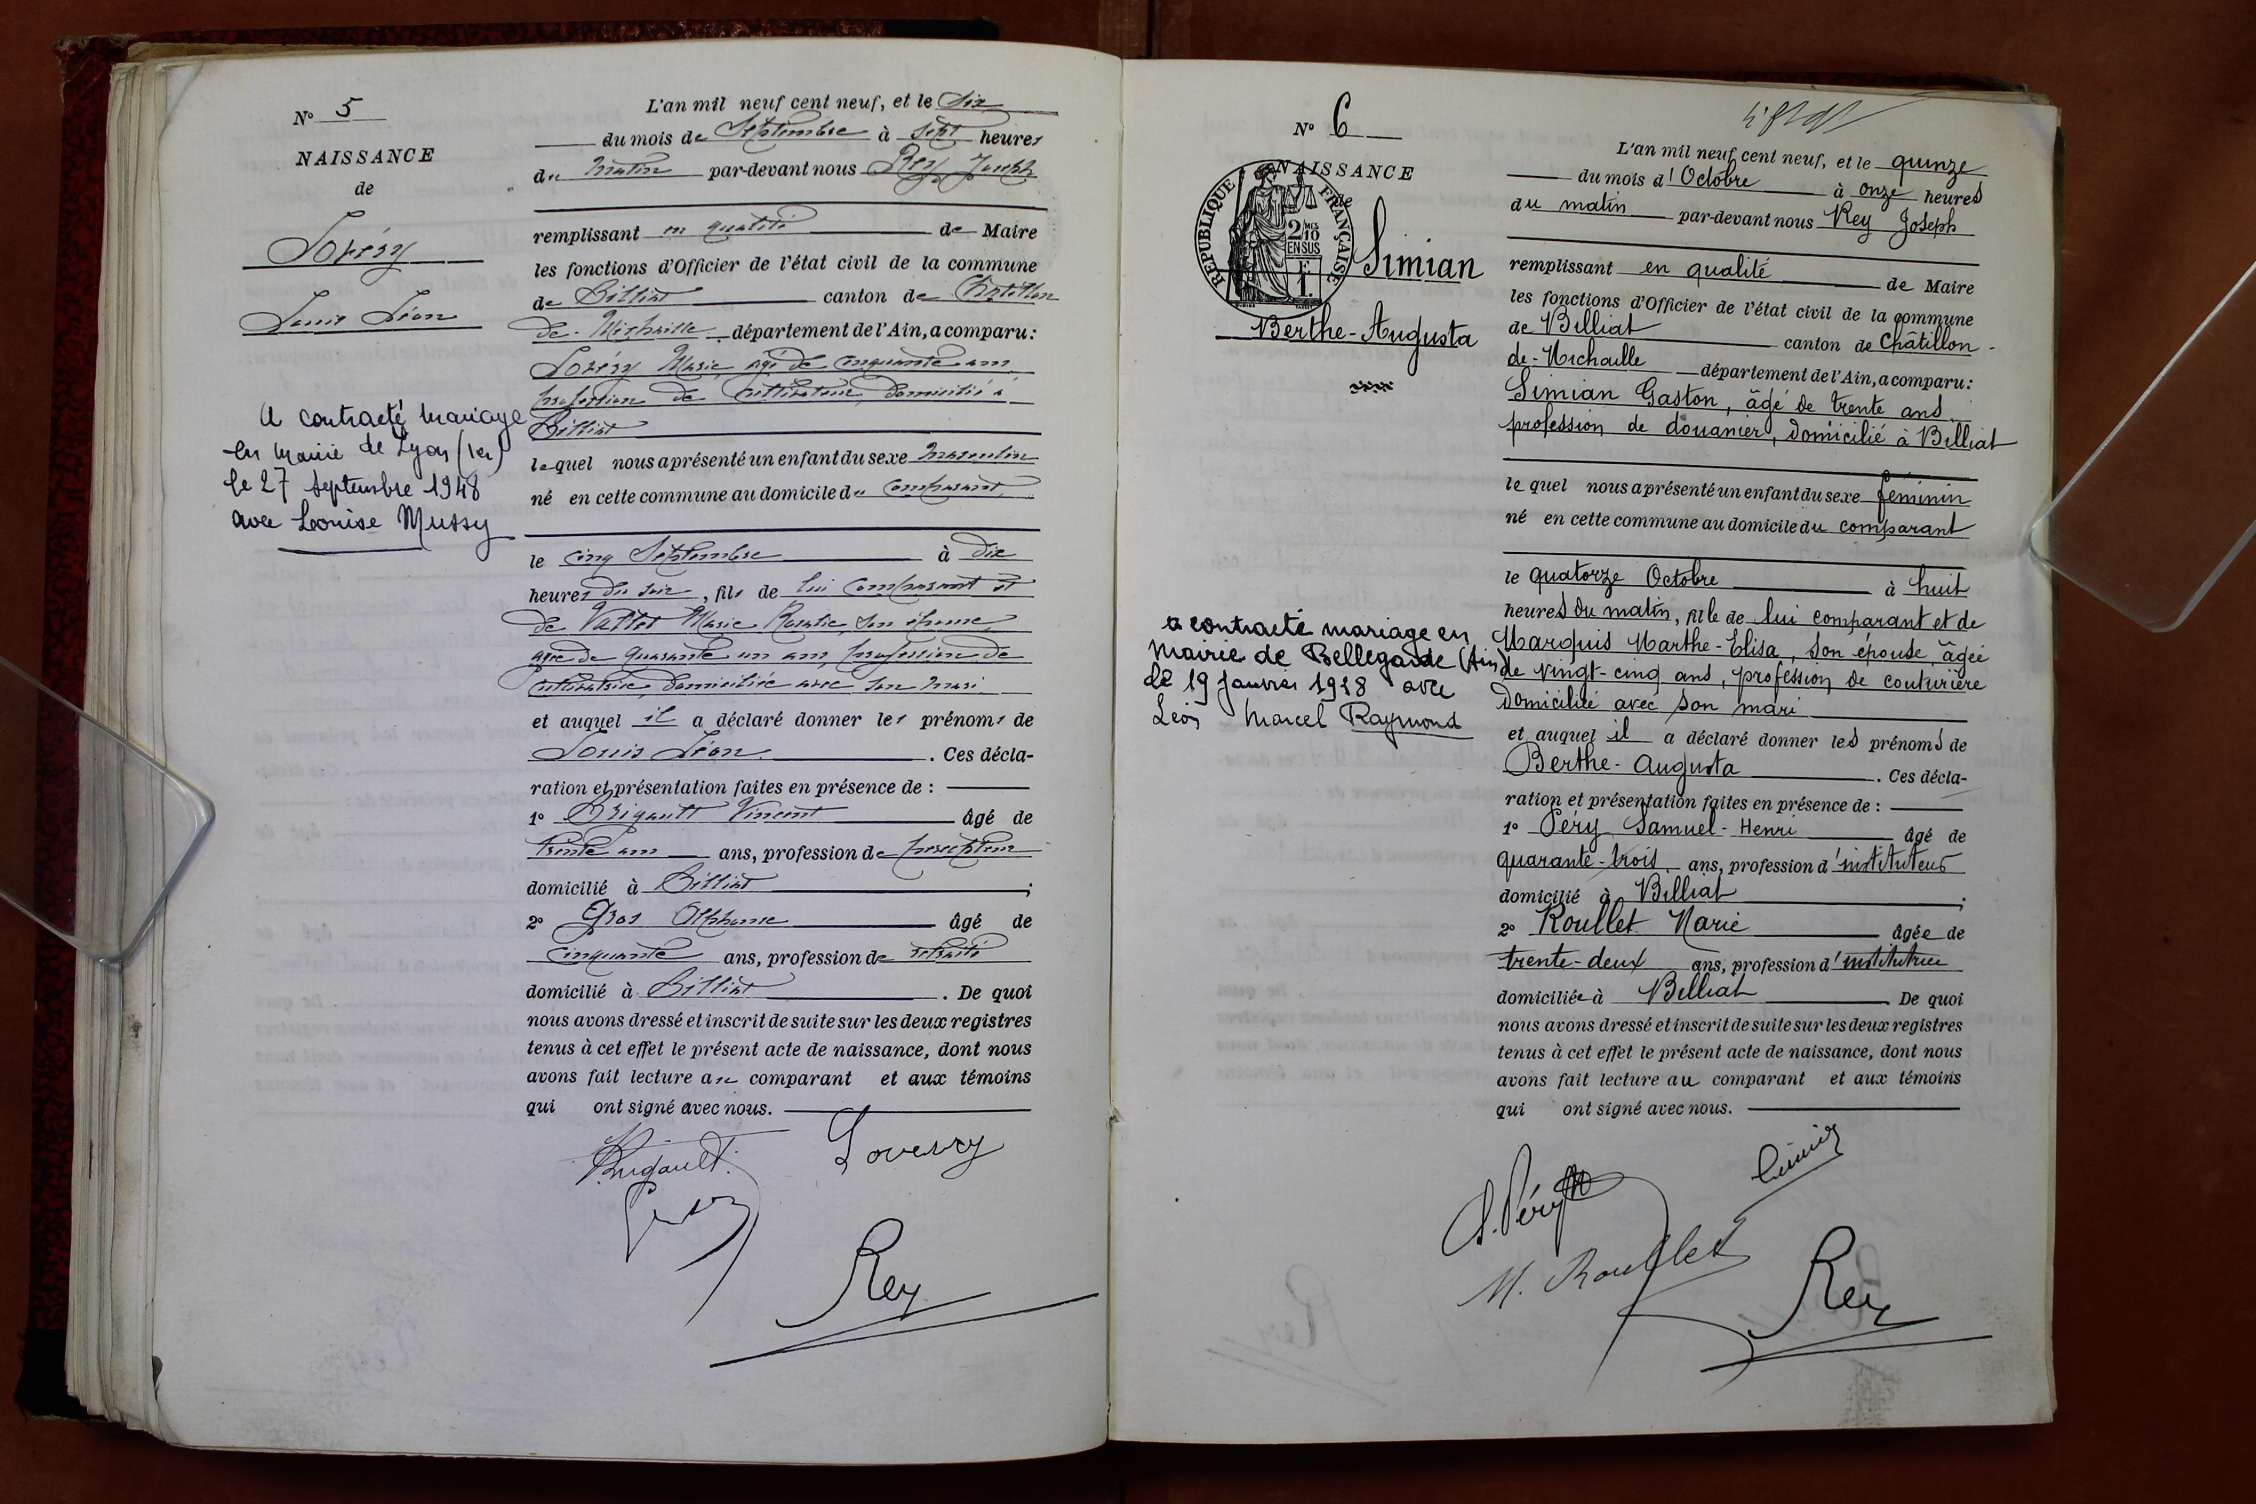 N° 5
NAISSANCE
de
Louis Léon
A contracté mariage
en mairie de Lyon (1er)
le 27 septembre 1948
avec Louise Mussy
L'an mil neuf cent neuf, et le six
du mois de Septembre à sept heures
du matin par-devant nous Rey Joseph
remplissant en qualité de Maire
les fonctions d'Officier de l'état civil de la commune
de Billiat canton de Châtillon
de Michaille département de l'Ain, a comparu:
Marie, âgé de cinquante ans
profession de cultivateur, domicilié à
Billiat
lequel nous a présenté un enfant du sexe masculin
né en cette commune au domicile du comparant
le cinq Septembre à dix
heures du soir, fils de lui comparant et
de Marie Rosalie, son épouse,
agée de quarante un ans, profession de
cultivatrice, domiciliée avec son mari
et auquel il a déclaré donner les prénoms de
Louis Léon. Ces décla-
ration et présentation faites en présence de :
1° Brigault Vincent âgé de
trente ans, profession de percepteur
domicilié à Billiat ;
2° Gros Alphonse âgé de
cinquante ans, profession de retraité
domicilié à Billiat. De quoi
nous avons dressé et inscrit de suite sur les deux registres
tenus à cet effet le présent acte de naissance, dont nous
avons fait lecture au comparant et aux témoins
qui ont signé avec nous.
Brigault
Rey
N° 6
NAISSANCE
de
RÉPUBLIQUE FRANÇAISE
2/10
EN SUS
Simian
Berthe-Augusta
a contracté mariage en
mairie de Bellegarde (Ain)
le 19 janvier 1928 avec
Léon Marcel Raymond
L'an mil neuf cent neuf, et le quinze
du mois d'Octobre à onze heures
du matin par-devant nous Rey Joseph
remplissant en qualité de Maire
les fonctions d'Officier de l'état civil de la commune
de Billiat canton de Châtillon-
de-Michaille département de l'Ain, a comparu:
Simian Gaston, âgé de trente ans
profession de douanier, domicilié à Billiat
lequel nous a présenté un enfant du sexe féminin
né en cette commune au domicile du comparant
le quatorze Octobre à huit
heures du matin, fille de lui comparant et de
Marquis Marthe-Elisa, son épouse, âgée
de vingt-cinq ans, profession de couturière
domiciliée avec son mari
et auquel il a déclaré donner les prénoms de
Berthe-Augusta. Ces décla-
ration et présentation faites en présence de :
1° Péry Samuel-Henri âgé de
quarante-trois ans, profession d'instituteur
domicilié à Billiat ;
2° Roullet Marie âgée de
trente-deux ans, profession d'institutrice
domiciliée à Billiat. De quoi
nous avons dressé et inscrit de suite sur les deux registres
tenus à cet effet le présent acte de naissance, dont nous
avons fait lecture au comparant et aux témoins
qui ont signé avec nous.
S. Péry
Simian
M. Roullet
Rey